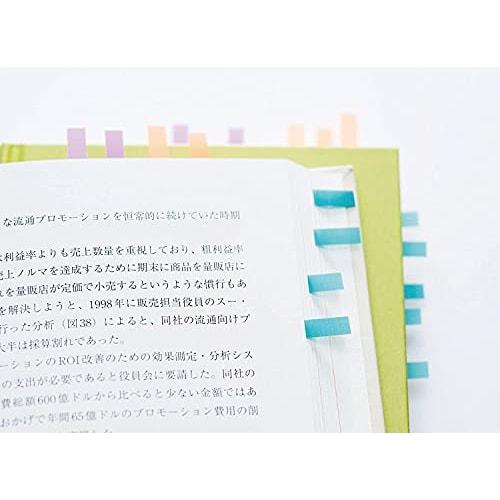 な流通プロモーションを恒常的に続けていた時期
利益率よりも売上数量を重視しており、粗利益率
売上ノルマを達成するために期末に商品を量販店に
を量販店が定価で小売するというような慣行もあ
を解決しようと、1998年に販売担当役員のスー・
行った分析（図38）によると、同社の流通向けプ
大半は採算割れであった。
ーションのROI改善のための効果測定・分析シス
の支出が必要であると役員会に要請した。同社の
費総額600億ドルから比べると少ない金額ではあ
おかげで年間65億ドルのプロモーション費用の削